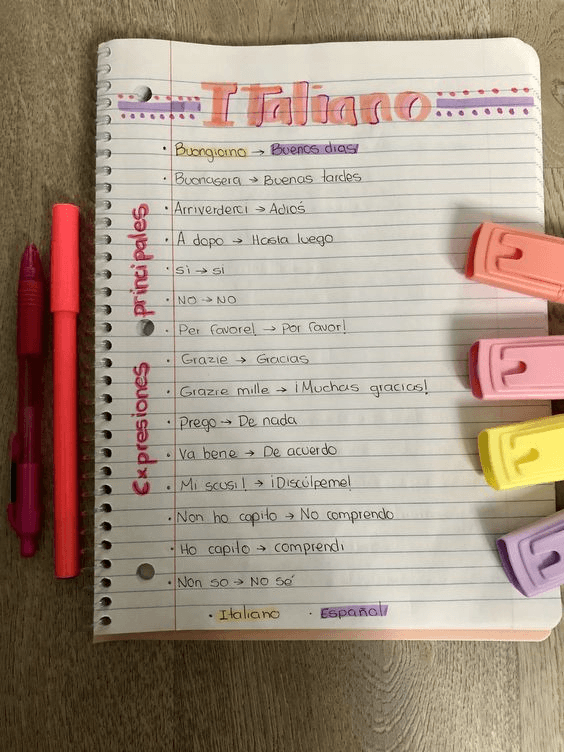 Italiano
Expresiones principales
• Buongiorno → Buenos dias
• Buonasera → Buenas tardes
• Arriverderci → Adiós
• A dopo → Hasta luego
• sì → si
• NO → NO
• Per favore! → Por favor!
• Grazie → Gracias
• Grazie mille → ¡Muchas gracias!
• Prego → De nada
• Va bene → De acuerdo
• Mi scusi! → ¡Discúlpeme!
• Non ho capito → No comprendo
• Ho capito → comprendi
• Non so → No sé
• Italiano • Español